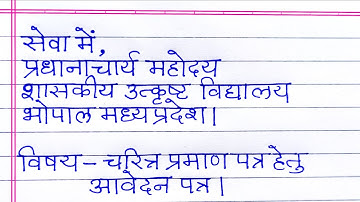 सेवा में,
प्रधानाचार्य महोदय
शासकीय उत्कृष्ट विद्यालय
भोपाल मध्यप्रदेश।
विषय – चरित्र प्रमाण पत्र हेतु
आवेदन पत्र।